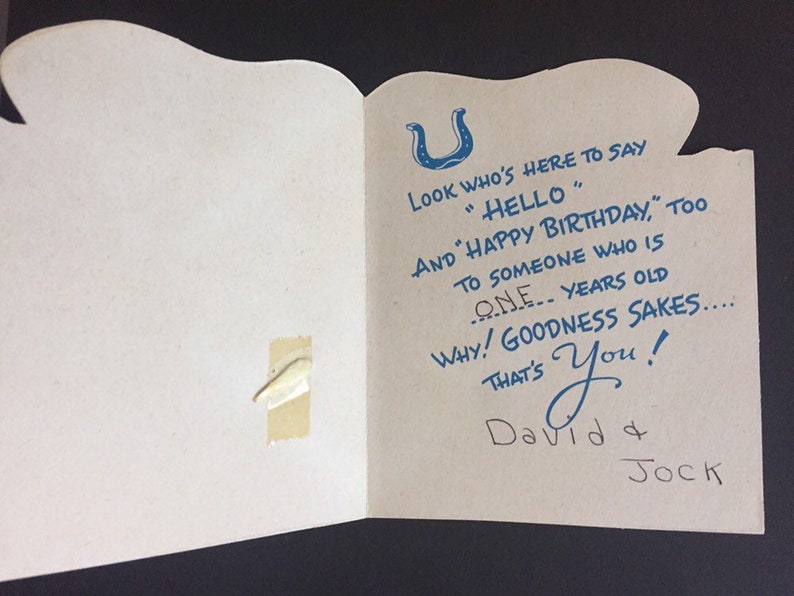 LOOK WHO'S HERE TO SAY
"HELLO"
AND "HAPPY BIRTHDAY," TOO
TO SOMEONE WHO IS
ONE YEARS OLD
WHY! GOODNESS SAKES....
THAT'S You!
David &
Jock